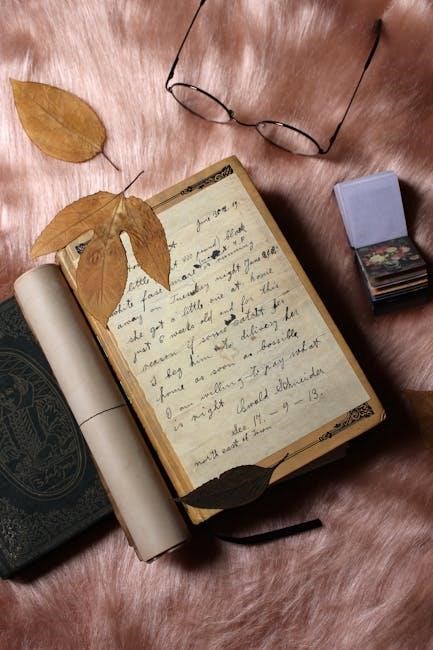 June 30th 19
little 800 pound) black
white face mare is running
away on Tuesday night June 26
she got a little one at home
just 6 weeks old and for this
reason if some catsh her
I beg him to delivery her
home as soon as possible
I am willing to pay what
is right Oswald Schneider
Sec 17. - 9 - 13.
north east of town